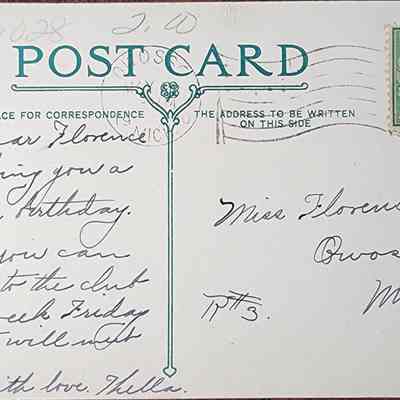 2.00
POST CARD
ACE FOR CORRESPONDENCE
THE ADDRESS TO BE WRITTEN
ON THIS SIDE
OWOSSO
MICH
ar Florence
ing you a
birthday.
you can
to the club
eek Friday
will meet
ith love. Thella.
Miss Floren
Owos
R#3.
M